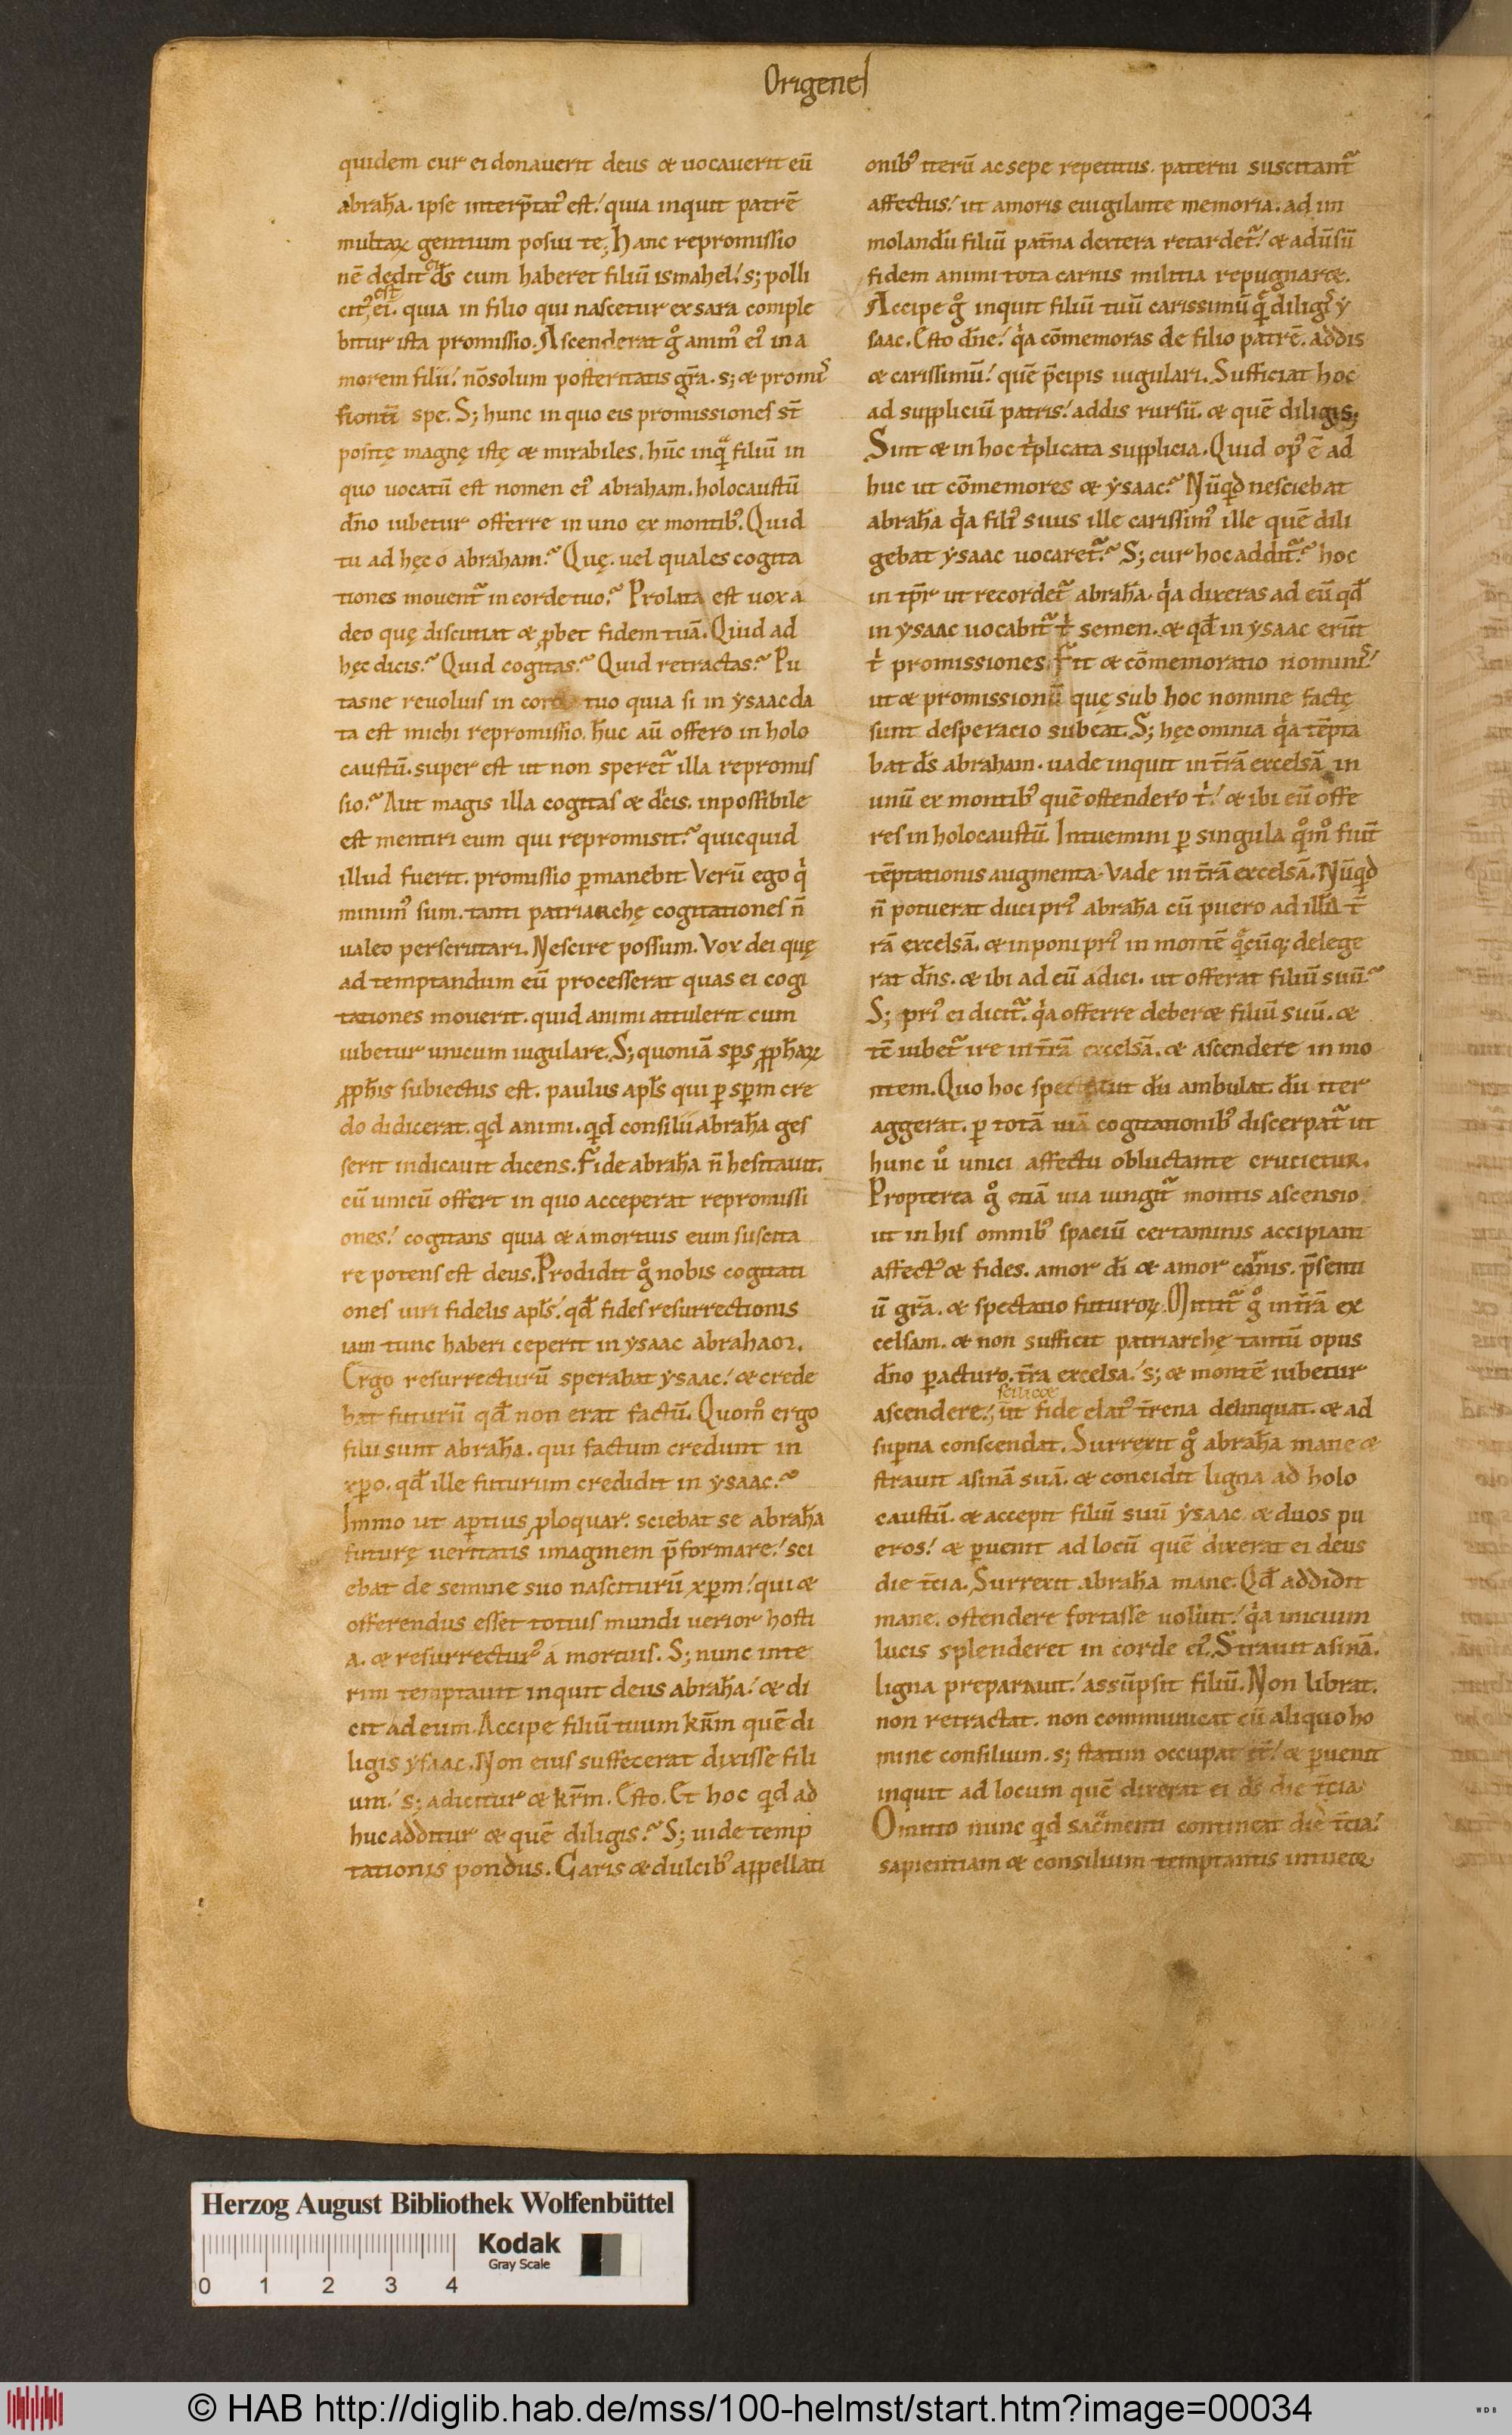 Origenes
quidem cur ei donauerit deus & uocauerit eū
abrah̄a. ipse interp̄tatꝰ est. quia inquit patrē
multaꝝ gentium posui te; Hanc repromissio
nē dedit ei d̄s cum haberet filiū ismahel. s; polli
citꝰ est ei. quia in filio qui nascetur ex sara comple
bitur ista promissio. Ascenderat gͦ animꝰ eiꝰ in a
morem filii. nōsolum posteritatis gr̄a. s; & promis
sionū spe. S; hunc in quo eis promissiones st̄
positę magnę istę & mirabiles. hūc inqͣ filiū in
quo uocatū est nomen eiꝰ abraham. holocaustū
dn̄o iubetur offerre in uno ex montibꝰ. Quid
tu ad hęc o abraham? Quę uel quales cogita
tiones mouent᷑ in corde tuo? Prolata est uox a
deo quę discutiat & ꝓbet fidem tuā. Quid ad
hęc dicis? Quid cogitas? Quid retractas? Pu
tasne reuoluis in corde tuo quia si in ysaac da
ta est michi repromissio. hūc aū offero in holo
caustū. super est ut non speret᷑ illa repromis
sio? Aut magis illa cogitas & dicis. inpossibile
est mentiri eum qui repromisit? quicquid
illud fuerit. promissio ꝑmanebit Verū ego qͥ
minimꝰ sum. tanti patriarchę cogitationes n̄
ualeo perscrutari. Nescire possum. Vox dei quę
ad temptandum eū processerat quas ei cogi
tationes mouerit. quid animi attulerit cum
iubetur unicum iugulare. S; quoniā sps ꝓph̄aꝝ
ꝓph̄is subiectus est. paulus apl̄s qui ꝑ spm cre
do didicerat. qd animi. qd consilii abrah̄a ges
serit indicauit dicens. Fide abrah̄a n̄ hesitauit.
cū unicū offert in quo acceperat repromissi
ones. cogitans quia & a mortuis eum suscita
re potens est deus. Prodidit gͦ nobis cogitati
ones uiri fidelis apl̄s. qd̄ fides resurrectionis
iam tunc haberi ceperit in ysaac abrahaꝫ.
Ergo resurrecturū sperabat ysaac. & crede
bat futurū qd̄ non erat factū. Quomͦ ergo
filii sunt abrah̄a. qui factum credunt in
xp̄o. qd̄ ille futurum credidit in ysaac?
Immo ut aꝑtius ꝓloquar. sciebat se abrah̄a
futurę ueritatis imaginem p̄formare. sci
ebat de semine suo nasciturū xp̄m. qui &
offerendus esset totius mundi uerior hosti
a. & resurrecturꝰ a mortuis. S; nunc inte
rim temptauit inquit deus abrah̄a. & di
cit ad eum. Accipe filiū tuum kr̄m quē di
ligis ysaac. Non eius suffecerat dixisse fili
um. s; adicitur & kr̄m. Esto. Et hoc qd ad
huc additur & quē diligis? S; uide temp
tationis pondus. Caris & dulcibꝰ appellati
onibꝰ iterū ac sepe repetitus. paterni suscitant᷑
affectus. ut amoris euigilante memoria. ad im
molandū filiū patn̄a dextera retardet᷑. & aduūsū
fidem animi tota carnis militia repugnar&.
Accipe gͦ inquit filiū tuū carissimū qͥ diligis y
saac. Esto dn̄e. qͥa cōmemoras de filio patrē. addis
& carissimū. quē p̄cipis iugulari. Sufficiat hoc
ad suppliciū patris. addis rursū. & quē diligis;
Sint & in hoc tͥplicata supplicia. Quid opꝰ ē ad
huc ut cōmemores & ysaac? Nūqd nesciebat
abrah̄a qͥa filiꝰ suus ille carissimꝰ ille quē dili
gebat ysaac uocaret᷑? S; cur hoc addit᷑? hoc
in tp̄r ut recordet᷑ abrah̄a. qͥa dixeras ad eū qd̄
in ysaac uocabit᷑ tͥ semen. & qd̄ in ysaac erūt
tͥ promissiones. Fit & cōmemoratio nominis.
ut & promissionū quę sub hoc nomine factę
sunt desperacio subeat. S; hęc omnia qͥa tēpta
bat d̄s abraham. uade inquit in tr̄ā excelsā in
unū ex montibꝰ quē ostendero tͥ. & ibi eū offe
res in holocaustū. Intuemini ꝑ singula qͦmͦ fiūt
tēptationis augmenta. Vade in tr̄ā excelsā. Nūqd
n̄ potuerat duci priꝰ abrah̄a cū puero ad illā t̄
rā excelsā. & inponi priꝰ in montē qͣcūq; delege
rat dn̄s. & ibi ad eū adici. ut offerat filiū suū?
S; priꝰ ei dicit᷑. qͥa offerre deber& filiū suū. &
tē iubet᷑ ire in tr̄ā excelsā. & ascendere in mo
ntem. Quo hoc spectet ut dū ambulat. dū iter
aggerat. ꝑ totā uiā cogitationibꝰ discerpat᷑ ut
hunc uͦ unici affectu obluctante crucietur.
Propterea gͦ etiā uia iungit᷑ montis ascensio
ut in his omnibꝰ spaciū certaminis accipiant
affectꝰ & fides. amor dī & amor carnis. p̄senti
ū gr̄a. & spectatio futuroꝝ. Mittit᷑ gͦ in tr̄ā ex
celsam. & non sufficit patriarchę tantū opus
dn̄o ꝑacturo. tr̄a excelsa. s; & montē iubetur
scilic&
ascendere. ut fide elatꝰ tr̄rena delinquat. & ad
suꝑna conscendat. Surrexit gͦ abrah̄a mane &
strauit asinā suā. & concidit ligna ad holo
caustū. & accepit filiū suū ysaac. & duos pu
eros. & ꝑuenit ad locū quē dixerat ei deus
die t̄cia. Surrexit abrah̄a mane. Qd̄ addidit
mane. ostendere fortasse uoluit. qͥa inicium
lucis splenderet in corde eiꝰ. Strauit asinā.
ligna preparauit. assūpsit filiū. Non librat.
non retractat. non communicat cū aliquo ho
mine consilium. s; statim occupat it̄. & ꝑuenit
inquit ad locum quē dixerat ei d̄s die t̄cia.
Omitto nunc qd sacͣmenti contineat die t̄cia.
sapientiam & consilium temptantis intueor
Herzog August Bibliothek Wolfenbüttel
0 1 2 3 4
Kodak
Gray Scale
© HAB http://diglib.hab.de/mss/100-helmst/start.htm?image=00034
WDB